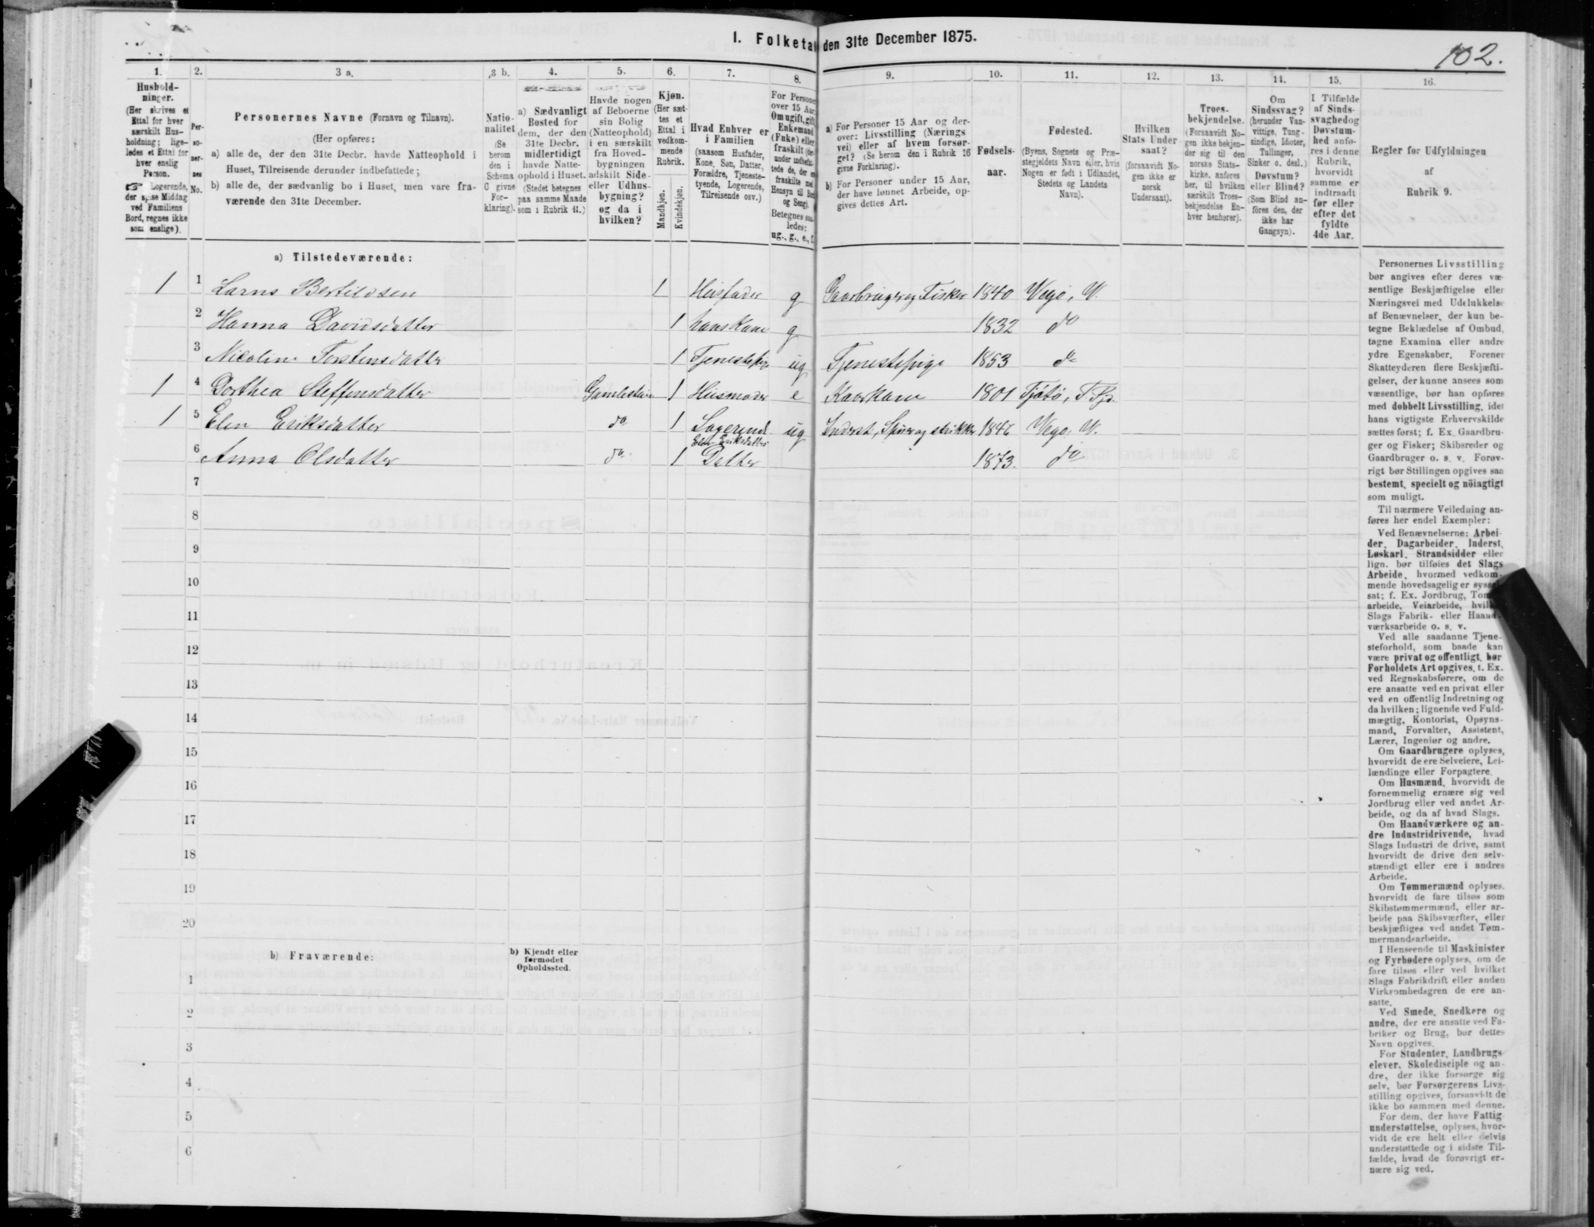 I. Folketæ den 31te December 1875.
102.
1.
Husholdninger.
(Her skrives et Ettal for hver særskilt Husholdning; ligeledes et Ettal for hver enslig Person.
Logerende, der spise Middag ved Familiens Bord, regnes ikke som enslige).
2.
Personernes No.
3 a.
Personernes Navne (Fornavn og Tilnavn).
(Her opføres:
a) alle de, der den 31te Decbr. havde Natteophold i Huset, Tilreisende derunder indbefattede;
b) alle de, der sædvanlig bo i Huset, men vare fraværende den 31te December.
3 b.
Nationalitet
(Se herom den i Schema O givne Forklaring).
4.
a) Sædvanligt Bosted for dem, der den 31te Decbr. midlertidigt havde Natteophold i Huset.
(Stedet betegnes paa samme Maade som i Rubrik 11.)
5.
Havde nogen af Beboerne sin Bolig (Natteophold) i en særskilt fra Hovedbygningen adskilt Side- eller Udhusbygning? og da i hvilken?
6.
Kjøn.
(Her sættes et Ettal i vedkommende Rubrik.
Mandkjøn.
Kvindekjøn.
7.
Hvad Enhver er i Familien
(saasom Husfader, Kone, Søn, Datter, Forældre, Tjenestetyende, Logerende, Tilreisende osv.)
8.
For Personer over 15 Aar
ug., g., e., f.
9.
a) For Personer 15 Aar og derover: Livsstilling (Næringsvei) eller af hvem forsørget? (Se herom den i Rubrik 16 givne Forklaring).
b) For Personer under 15 Aar, der have lønnet Arbeide, opgives dettes Art.
10.
Fødselsaar.
11.
Fødested.
(Byens, Sognets og Præstegjeldets Navn eller, hvis Nogen er født i Udlandet, Stedets og Landets Navn).
12.
Hvilken Stats Undersaat?
(forsaavidt Nogen ikke er norsk Undersaat).
13.
Troesbekjendelse.
(Forsaavidt Nogen ikke bekjender sig til den norske Statskirke, anføres her, til hvilken særskilt Troesbekjendelse Enhver henhører).
14.
Om Sindssvag? (herunder Vanvittige, Tungsindige, Idioter, Tullinger, Sinker o. desl.) Døvstum? eller Blind? (Som Blind anføres den, der ikke har Gangsyn).
15.
I Tilfælde af Sindssvaghed og Døvstumhed anføres i denne Rubrik, hvorvidt samme er indtraadt før eller efter det fyldte 4de Aar.
16.
Regler for Udfyldningen af Rubrik 9.
a) Tilstedeværende:
1 1 Larns Bertilssen 1 Husfader g Gaardbruger og Fisker 1840 Vegø, V.
2 Hanna Davidsdatter 1 hans Kone g 1832 do
3 Nicolin Torstensdatter 1 ug Tjenestepige 1853 do
1 4 Dorthea Steffensdatter 1 Husmoder e Kaarkone 1801 Tjøtø,
1 5 Elen Eriksdatter do 1 Logerende ug Inderst, Spinder og strikker 1842 Vegø, V.
6 Anna Olsdatter do 1 Elen Eriksdatters Datter 1873. do
7
8
9
10
11
12
13
14
15
16
17
18
19
20
b) Fraværende:
b) Kjendt eller formodet Opholdssted.
1
2
3
4
5
6
Personernes Livsstilling
bør angives efter deres væ-
sentlige Beskjæftigelse eller
Næringsvei med Udelukkelse
af Benævnelser, der kun be-
tegne Beklædelse af Ombud,
tagne Examina eller andre
ydre Egenskaber. Forener
Skatteyderen flere Beskjæfti-
gelser, der kunne ansees som
væsentlige, bør han opføres
med dobbelt Livsstilling, idet
hans vigtigste Erhvervskilde
sættes først; f. Ex. Gaardbru-
ger og Fisker; Skibsreder og
Gaardbruger o. s. v. Forøv-
rigt bør Stillingen opgives saa
bestemt, specielt og nöiagtigt
som muligt.
Til nærmere Veiledning an-
føres her endel Exempler:
Ved Benævnelserne: Arbei-
der, Dagarbeider, Inderst,
Løskarl, Strandsidder eller
lign. bør tilføies det Slags
Arbeide, hvormed vedkom-
mende hovedsagelig er syssel-
sat; f. Ex. Jordbrug, Tom
arbeide, Veiarbeide, hvilke
Slags Fabrik- eller Haand-
værksarbeide o. s. v.
Ved alle saadanne Tjene-
steforhold, som baade kan
være privat og offentligt, bør
Forholdets Art opgives, t. Ex.
ved Regnskabsførere, om de
ere ansatte ved en privat eller
ved en offentlig Indretning og
da hvilken; lignende ved Fuld-
mægtig, Kontorist, Opsyns-
mand, Forvalter, Assistent,
Lærer, Ingeniør og andre.
Om Gaardbrugere oplyses,
hvorvidt de ere Selveiere, Lei-
lændinge eller Forpagtere.
Om Husmænd, hvorvidt de
fornemmelig ernære sig ved
Jordbrug eller ved andet Ar-
beide, og da af hvad Slags.
Om Haandværkere og an-
dre Industridrivende, hvad
Slags Industri de drive, samt
hvorvidt de drive den selv-
stændigt eller ere i andres
Arbeide.
Om Tømmermænd oplyses,
hvorvidt de fare tilsøs som
Skibstømmermænd, eller ar-
beide paa Skibsværfter, eller
beskjæftiges ved andet Tøm-
mermandsarbeide.
I Henseende til Maskinister
og Fyrbødere oplyses, om de
fare tilsøs eller ved hvilket
Slags Fabrikdrift eller anden
Virksomhedsgren de ere an-
satte.
Ved Smede, Snedkere og
andre, der ere ansatte ved Fa-
briker og Brug, bør dettes
Navn opgives.
For Studenter, Landbrugs-
elever, Skoledisciple og an-
dre, der ikke forsørge sig
selv, bør Forsørgerens Livs-
stilling opgives, forsaavidt de
ikke bo sammen med denne.
For dem, der have Fattig-
understøttelse, oplyses, hvor-
vidt de ere helt eller delvis
understøttede og i sidste Til-
fælde, hvad de forøvrigt er-
nære sig ved.